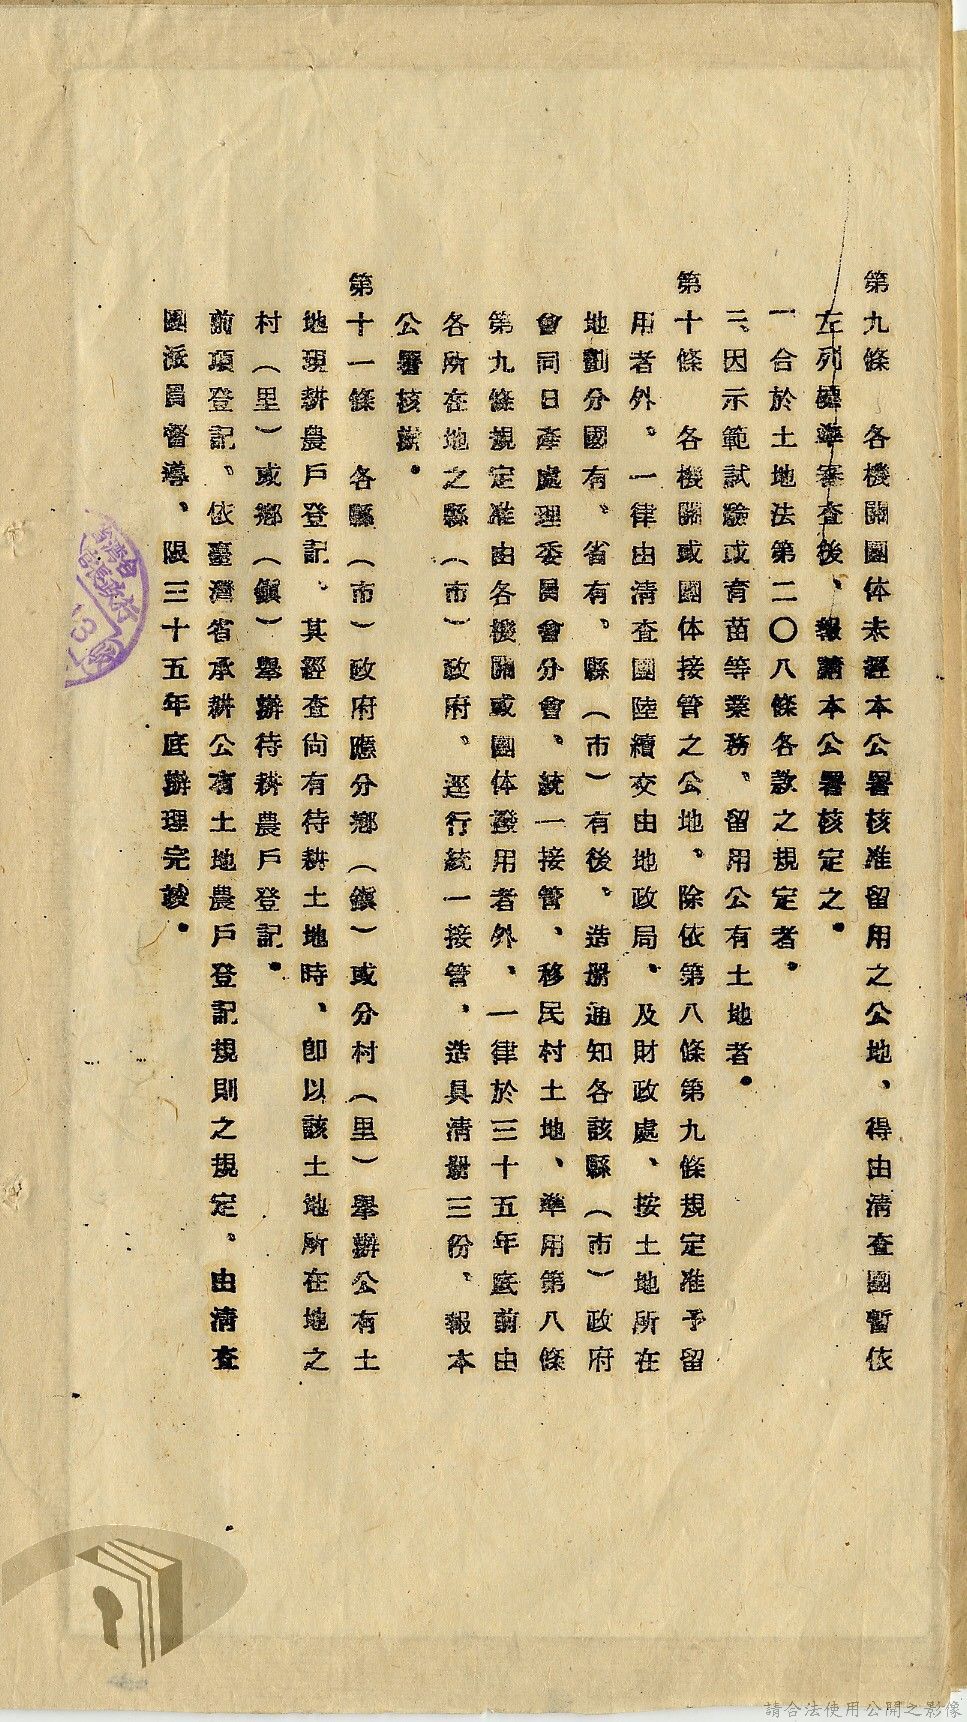 第九條　各機關團体未經本公署核准留用之公地、得由清查團暫依
左列標準審查後、報請本公署核定之。
一合於土地法第二〇八條各款之規定者。
二、因示範試驗或育苗等業務、留用公有土地者。
第十條　各機關或團体接管之公地、除依第八條第九條規定准予留
用者外、一律由清查團陸續交由地政局、及財政處、按土地所在
地劃分國有、省有、縣（市）有後、造册通知各該縣（市）政府
會同日產處理委員會分會、統一接管、移民村土地、準用第八條
第九條規定准由各機關或團体撥用者外、一律於三十五年底前由
各所在地之縣（市）政府、逕行統一接管、造具清册三份、報本
公署核辦。
第十一條　各縣（市）政府應分鄉（鎮）或分村（里）舉辦公有土
地現耕農戶登記、其經查尚有待耕土地時、卽以該土地所在地之
村（里）或鄉（鎮）舉辦待耕農戶登記。
前項登記、依臺灣省承耕公有土地農戶登記規則之規定、由清查
團派員督導、限三十五年底辦理完竣。
請合法使用公開之影像